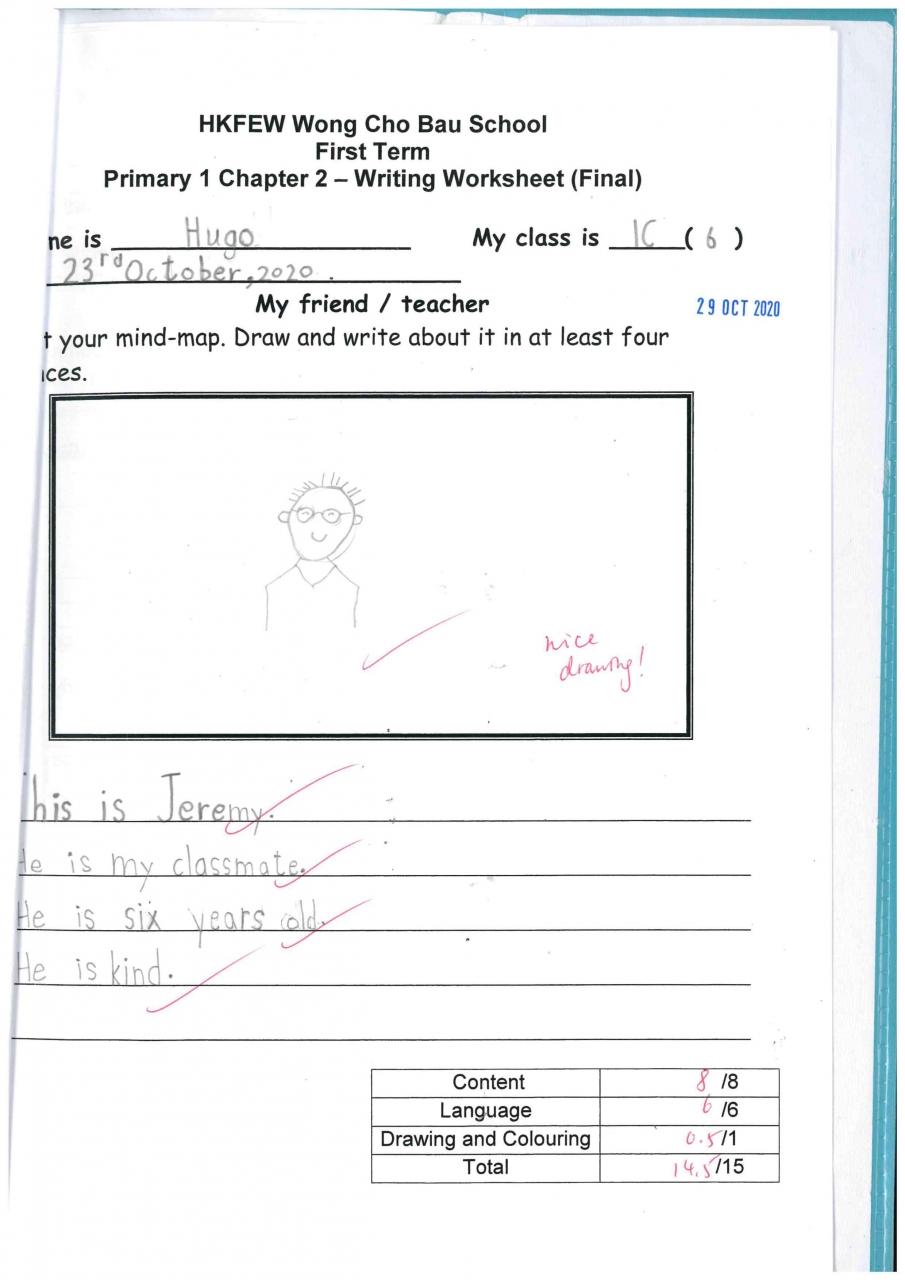 HKFEW Wong Cho Bau School
First Term
Primary 1 Chapter 2 – Writing Worksheet (Final)
ne is Hugo My class is 1C ( 6 )
23rd October, 2020.
My friend / teacher 29 OCT 2020
t your mind-map. Draw and write about it in at least four
ces.
nice
drawing!
This is Jeremy.
He is my classmate.
He is six years old.
He is kind.
Content 8 /8
Language 6 /6
Drawing and Colouring 0.5/1
Total 14.5/15